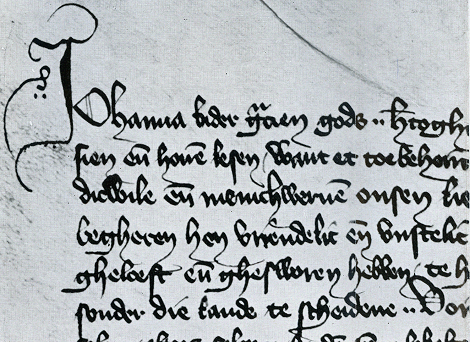 Johanna bider gracien gods .. hertogh
sien eñ horen lesen want et toebehoirt
dicwile eñ menichwerven onsen lie
begheren hen vriendelic eñ vrstelic
gheloeft eñ ghesworen hebben te h
sonder die lande te scheidene .. Vor